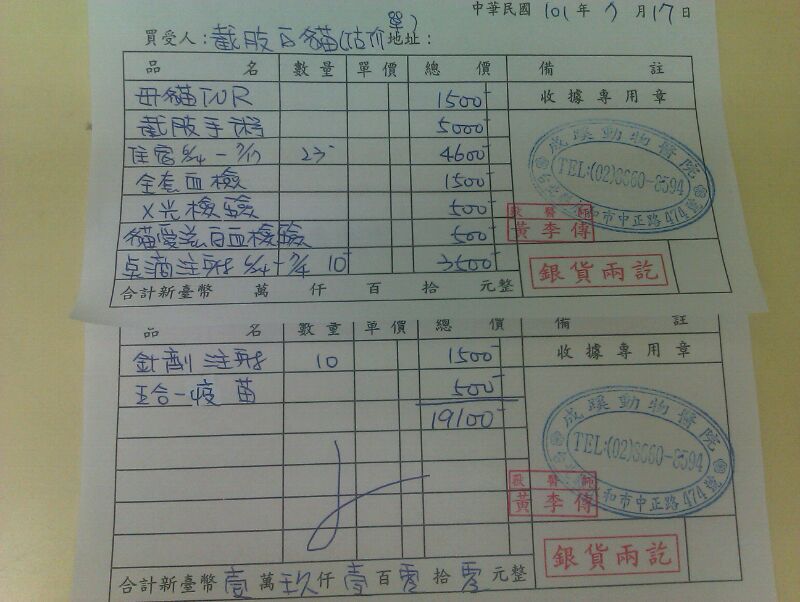 中華民國 101 年 7 月 17 日
買受人：截肢白貓(估價單) 地址：
品 名 數量 單價 總 價 備 註
母貓TNR 1500
收據專用章
截肢手術 5000
住宿 6/24 - 7/17 23 4600
全套血檢 1500
X光檢驗 500
貓愛滋白血檢驗 500
點滴注射 6/24 - 7/4 10 3500
合計新臺幣 萬 仟 百 拾 元整
成蹊動物醫院
TEL:(02)8660-8594
和市中正路474號
獸醫師
黃李傳
銀貨兩訖
品 名 數量 單價 總 價 備 註
針劑注射 10 1500
收據專用章
五合一疫苗 500
19100
成蹊動物醫院
TEL:(02)8660-8594
和市中正路474號
獸醫師
黃李傳
銀貨兩訖
合計新臺幣 壹 萬 玖 仟 壹 百 零 拾 零 元整